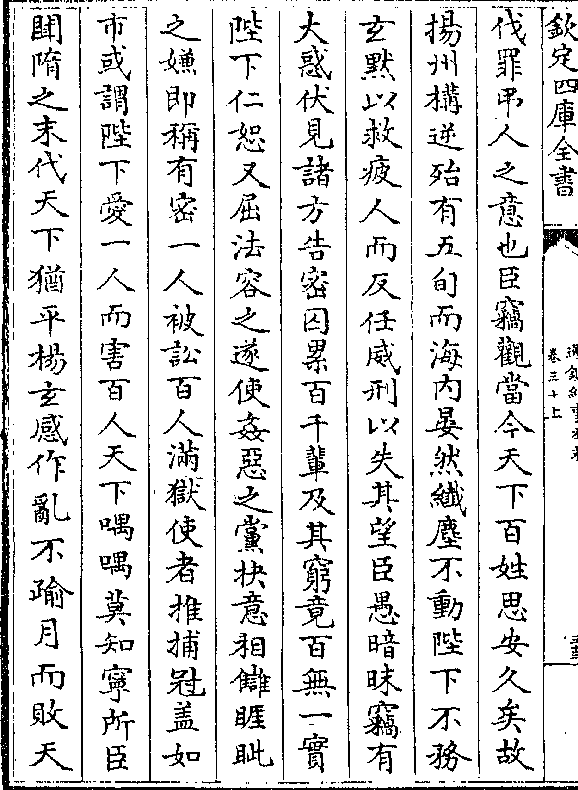 欽定四庫全書
卷三十上
伐罪弔人之意也臣竊觀當今天下百姓思安久矣故
揚州構逆殆有五旬而海内晏然纎塵不動陛下不務
玄默以救疲人而反任威刑以失其望臣愚暗昧竊有
大惑伏見諸方告密囚累百千軰及其窮竟百無一實
陛下仁恕又屈法容之遂使姦惡之黨抉意相讎睚眦
之嫌即稱有密一人被訟百人滿獄使者推捕冠盖如
市或謂陛下愛一人而害百人天下喁喁莫知寧所臣
聞隋之末代天下猶平楊玄感作亂不踰月而敗天